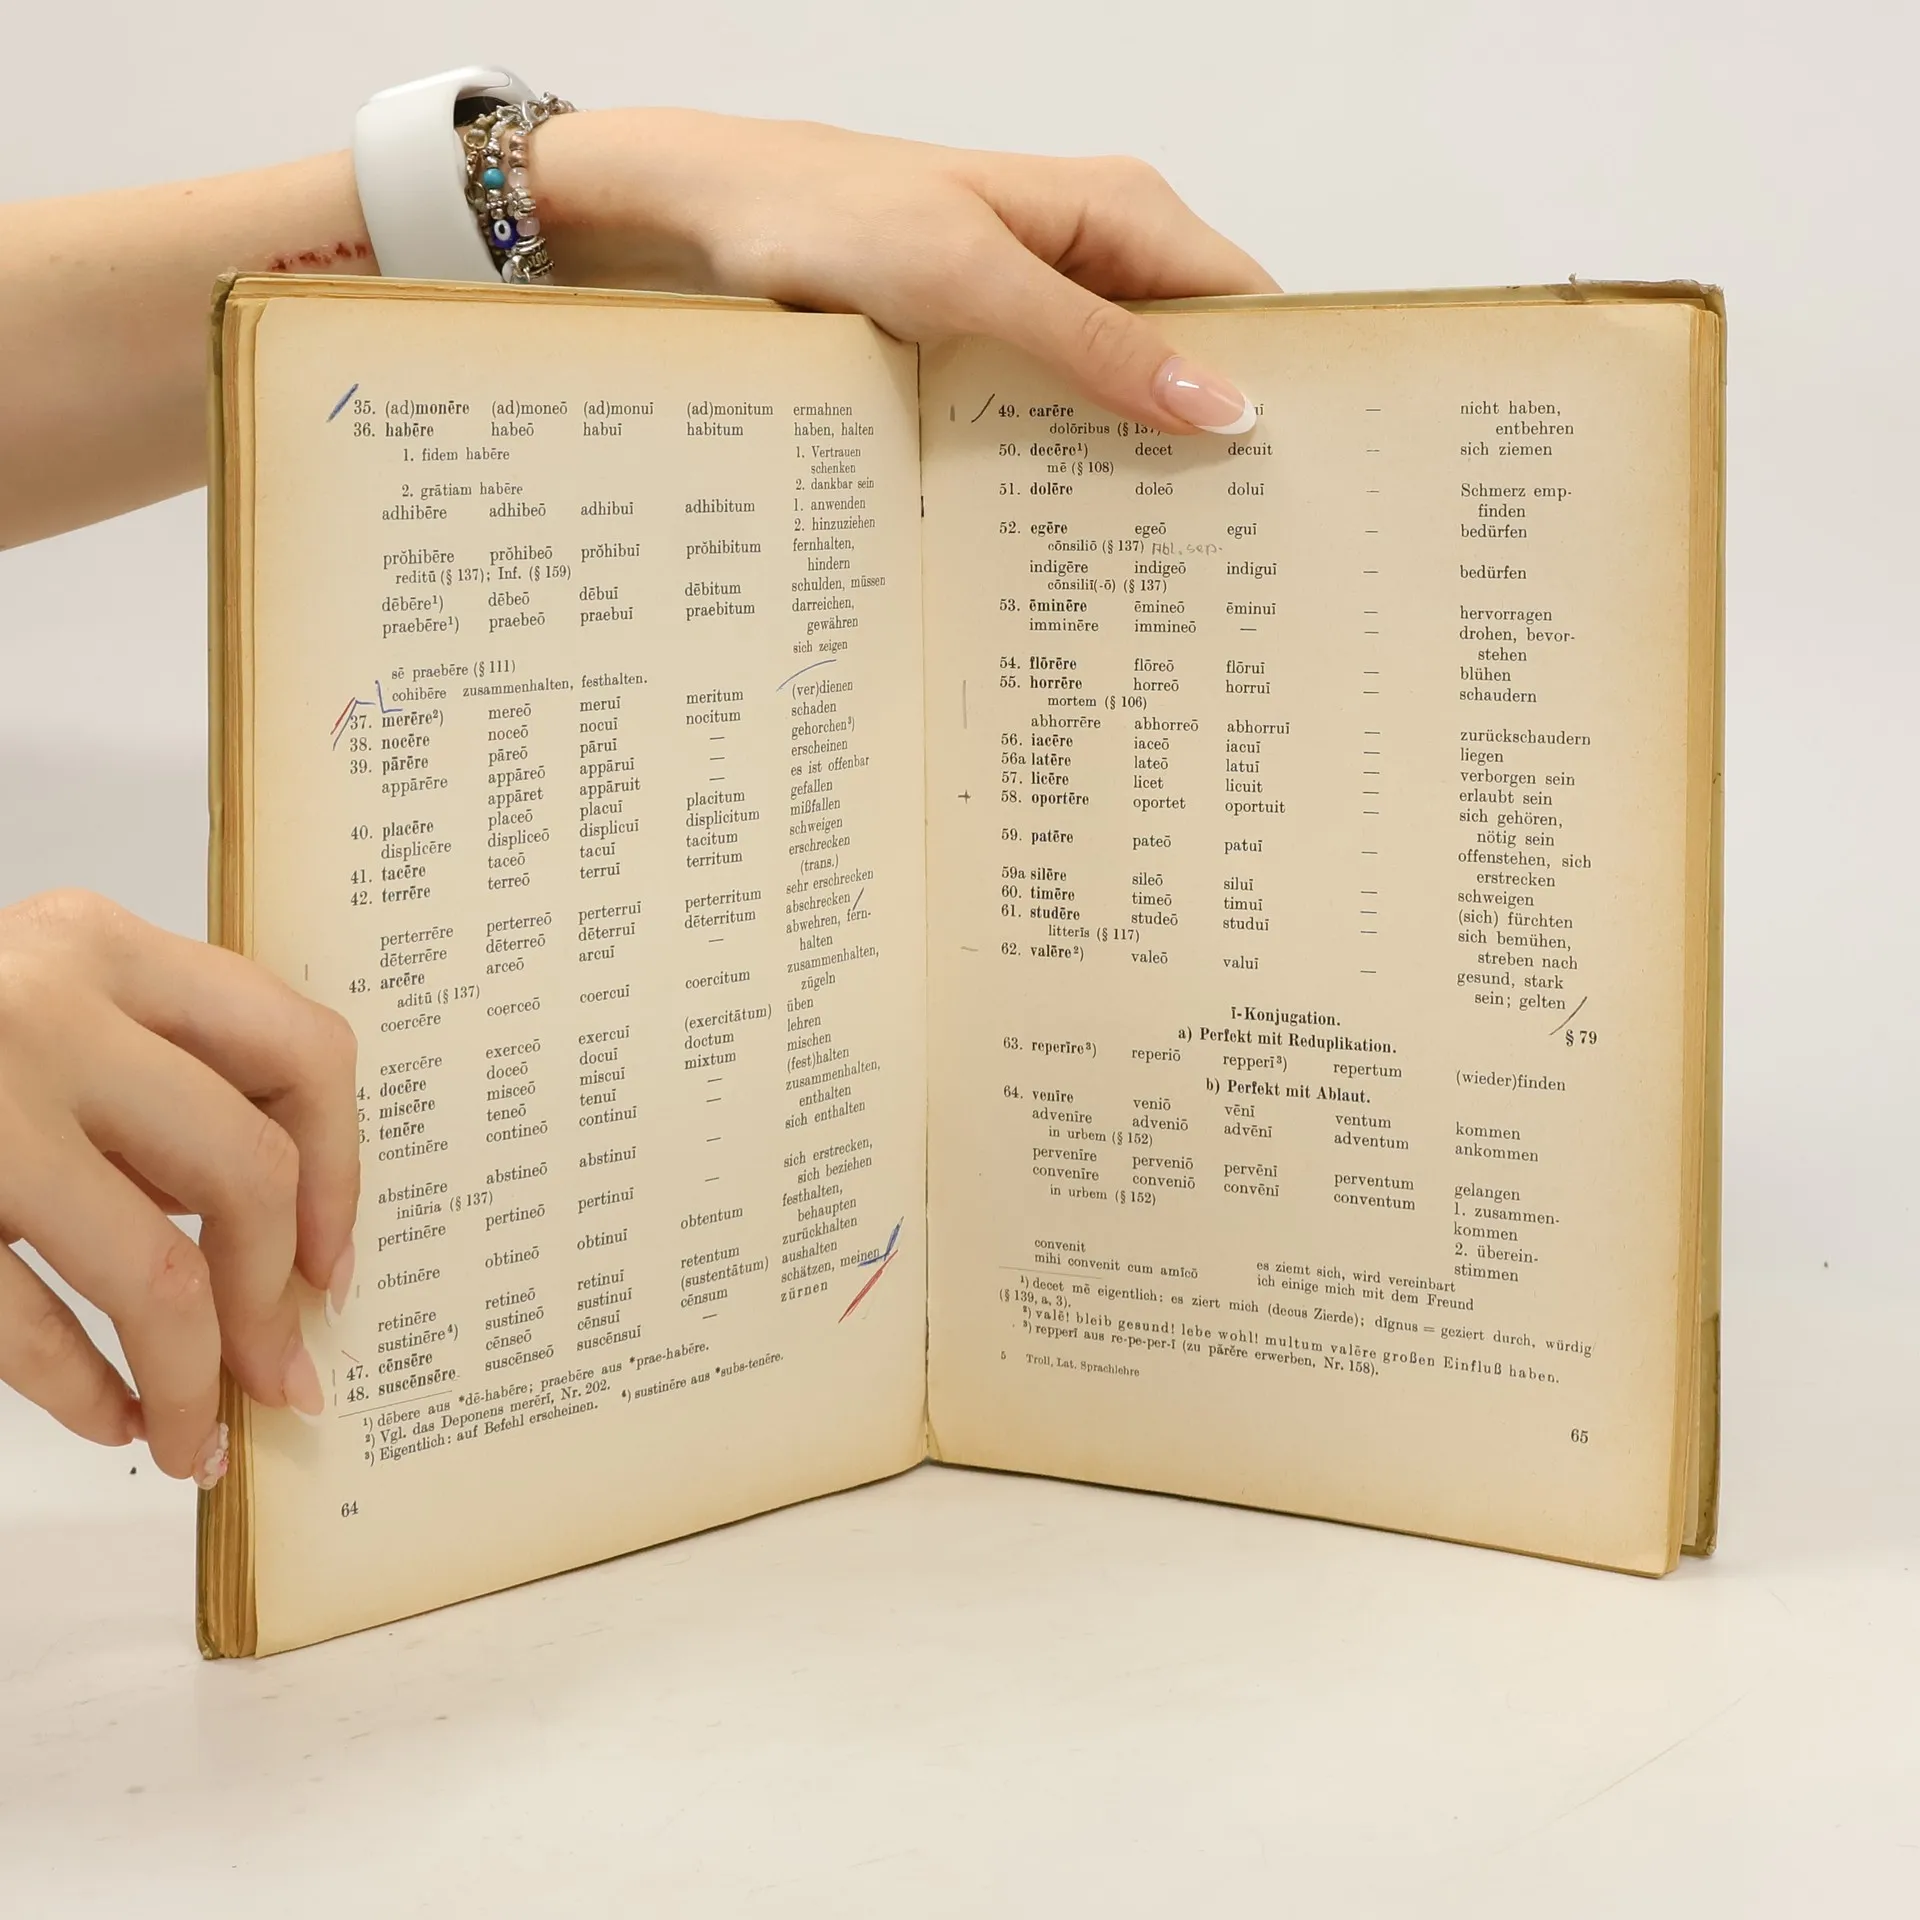 35. (ad)monēre (ad)moneō (ad)monuī (ad)monitum ermahnen
36. habēre habeō habuī habitum haben, halten
1. fidem habēre 1. Vertrauen
schenken
2. grātiam habēre 2. dankbar sein
adhibēre adhibeō adhibuī adhibitum 1. anwenden
2. hinzuziehen
prŏhibēre prŏhibeō prŏhibuī prŏhibitum fernhalten,
hindern
reditū (§ 137); Inf. (§ 159)
dēbēre¹) dēbeō dēbuī dēbitum schulden, müssen
praebēre¹) praebeō praebuī praebitum darreichen,
gewähren
sē praebēre (§ 111) sich zeigen
cohibēre zusammenhalten, festhalten.
37. merēre²) mereō meruī meritum (ver)dienen
38. nocēre noceō nocuī nocitum schaden
39. pārēre pāreō pāruī — gehorchen³)
appārēre appāreō appāruī — erscheinen
appāret appāruit es ist offenbar
40. placēre placeō placuī placitum gefallen
displicēre displiceō displicuī displicitum mißfallen
41. tacēre taceō tacuī tacitum schweigen
42. terrēre terreō terruī territum erschrecken
(trans.)
perterrēre perterreō perterruī perterritum sehr erschrecken
dēterrēre dēterreō dēterruī dēterritum abschrecken
43. arcēre arceō arcuī — abwehren, fern-
halten
aditū (§ 137)
coercēre coerceō coercuī coercitum zusammenhalten,
zügeln
exercēre exerceō exercuī (exercitātum) üben
4. docēre doceō docuī doctum lehren
5. miscēre misceō miscuī mixtum mischen
6. tenēre teneō tenuī — (fest)halten
continēre contineō continuī — zusammenhalten,
enthalten
abstinēre abstineō abstinuī — sich enthalten
iniūria (§ 137)
pertinēre pertineō pertinuī — sich erstrecken,
sich beziehen
obtinēre obtineō obtinuī obtentum festhalten,
behaupten
retinēre retineō retinuī retentum zurückhalten
sustinēre⁴) sustineō sustinuī (sustentātum) aushalten
47. cēnsēre cēnseō cēnsuī cēnsum schätzen, meinen
48. suscēnsēre suscēnseō suscēnsuī — zürnen
¹) dēbere aus *dē-habēre; praebēre aus *prae-habēre.
²) Vgl. das Deponens merērī, Nr. 202. ⁴) sustinēre aus *subs-tenēre.
³) Eigentlich: auf Befehl erscheinen.
64
49. carēre — nicht haben,
dolōribus (§ 137) entbehren
50. decēre¹) decet decuit — sich ziemen
mē (§ 108)
51. dolēre doleō doluī — Schmerz emp-
finden
52. egēre egeō eguī — bedürfen
cōnsiliō (§ 137) Abl. sep.
indigēre indigeō indiguī — bedürfen
cōnsiliī(-ō) (§ 137)
53. ēminēre ēmineō ēminuī — hervorragen
imminēre immineō — — drohen, bevor-
stehen
54. flōrēre flōreō flōruī — blühen
55. horrēre horreō horruī — schaudern
mortem (§ 106)
abhorrēre abhorreō abhorruī — zurückschaudern
56. iacēre iaceō iacuī — liegen
56a latēre lateō latuī — verborgen sein
57. licēre licet licuit — erlaubt sein
58. oportēre oportet oportuit — sich gehören,
nötig sein
59. patēre pateō patuī — offenstehen, sich
erstrecken
59a silēre sileō siluī — schweigen
60. timēre timeō timuī — (sich) fürchten
61. studēre studeō studuī — sich bemühen,
litterīs (§ 117) streben nach
62. valēre²) valeō valuī — gesund, stark
sein; gelten
ī-Konjugation.
§ 79
a) Perfekt mit Reduplikation.
63. reperīre³) reperiō repperī³) repertum (wieder)finden
b) Perfekt mit Ablaut.
64. venīre veniō vēnī ventum kommen
advenīre adveniō advēnī adventum ankommen
in urbem (§ 152)
pervenīre perveniō pervēnī perventum gelangen
convenīre conveniō convēnī conventum 1. zusammen-
in urbem (§ 152) kommen
2. überein-
stimmen
convenit es ziemt sich, wird vereinbart
mihi convenit cum amīcō ich einige mich mit dem Freund
¹) decet mē eigentlich: es ziert mich (decus Zierde); dīgnus = geziert durch, würdig
(§ 139, a, 3).
²) valē! bleib gesund! lebe wohl! multum valēre großen Einfluß haben.
³) repperī aus re-pe-per-ī (zu părĕre erwerben, Nr. 158).
5 Troll, Lat. Sprachlehre
65